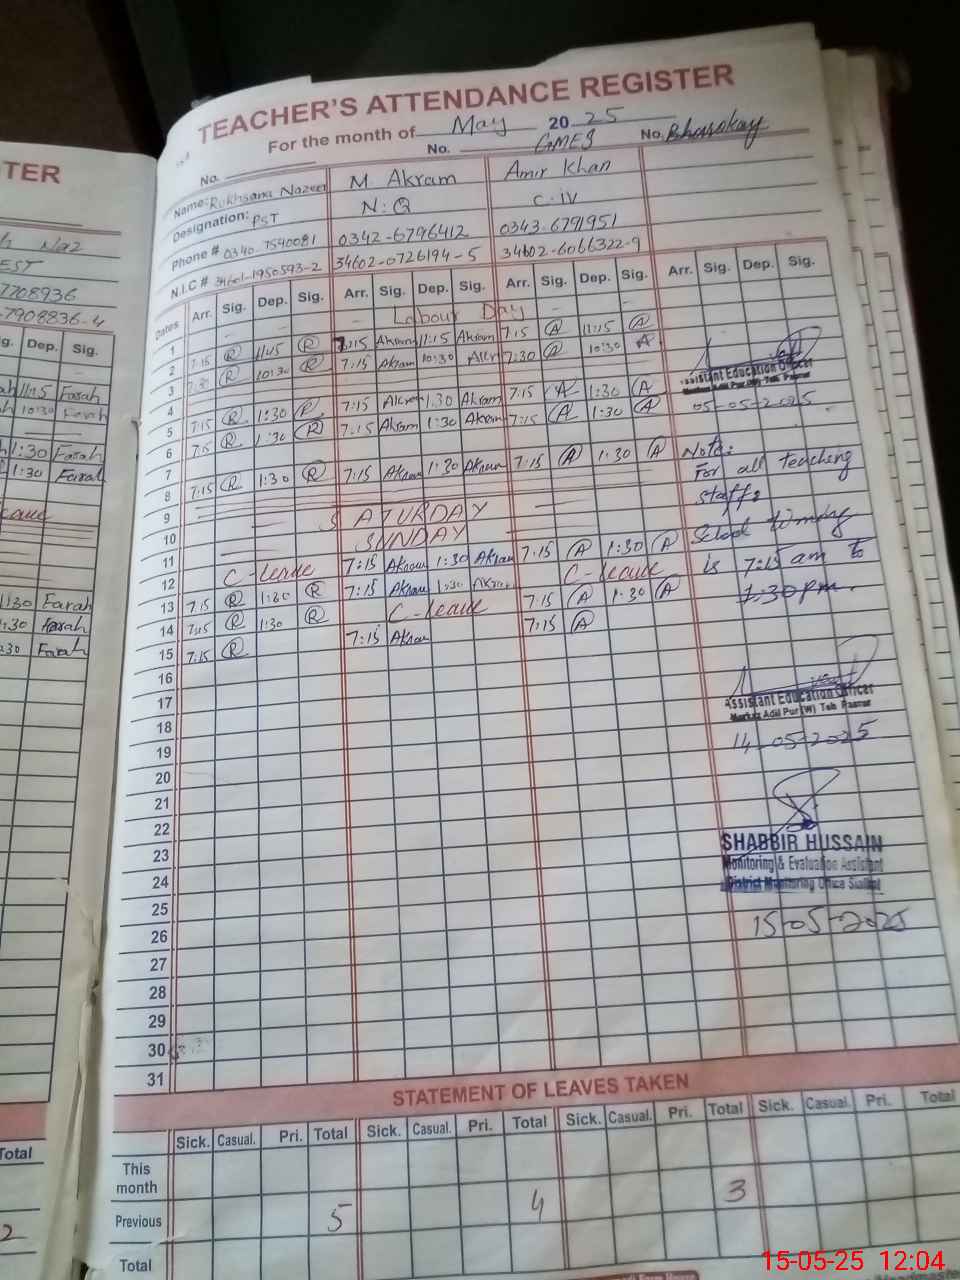 TER
h Naz
EST
7708936
-7908836-4
g. Dep. Sig.
ah 11:15 Farah
10:30 Farah
1:30 Farah
1:30 Farah
eave
1:30 Farah
:30 Farah
:30 Farah
Total
2
TEACHER'S ATTENDANCE REGISTER
For the month of May 2025
No. No. GMES No. Bhusokay
Name: Rukhsana Nazeer M. Akram Amir Khan
Designation: PST N.Q C-IV
Phone # 0340-7540081 0342-6796412 0343-6791951
N.I.C # 34601-1950593-2 34602-0726194-5 34602-6066322-9
Dates Arr. Sig. Dep. Sig. Arr. Sig. Dep. Sig. Arr. Sig. Dep. Sig. Arr. Sig. Dep. Sig.
1 Labour Day
2 7:15 R 11:15 R 7:15 Akram 11:15 Akram 7:15 A 11:15 A
3 7:30 R 10:30 R 7:15 Akram 10:30 Akr 7:30 A 10:30 A
4
5 7:15 R 1:30 R 7:15 Akram 1:30 Akram 7:15 A 1:30 A
6 7:15 R 1:30 R 7:15 Akram 1:30 Akram 7:15 A 1:30 A
7
8 7:15 R 1:30 R 7:15 Akram 1:30 Akram 7:15 A 1:30 A
9
10 SATURDAY
11 SUNDAY
12 C-leave 7:15 Akram 1:30 Akram 7:15 A 1:30 A
13 7:15 R 1:30 R 7:15 Akram 1:30 Akram C-leave
14 7:15 R 1:30 R C-leave 7:15 A 1:30 A
15 7:15 R 7:15 Akram 7:15 A
16
17
18
19
20
21
22
23
24
25
26
27
28
29
30
31
Assistant Education Officer
Markaz Adil Pur (W) Teh Pasrur
05-05-2025
Note:
For all teaching
staff:
School timing
is 7:15 am to
1:30 pm.
Assistant Education Officer
Markaz Adil Pur (W) Teh Pasrur
14-05-2025
SHABBIR HUSSAIN
Monitoring & Evaluation Assistant
District Monitoring Office Sialkot
15-05-2025
STATEMENT OF LEAVES TAKEN
Sick. Casual. Pri. Total Sick. Casual. Pri. Total Sick. Casual. Pri. Total Sick. Casual. Pri. Total
This month
Previous 5 4 3
Total
15-05-25 12:04